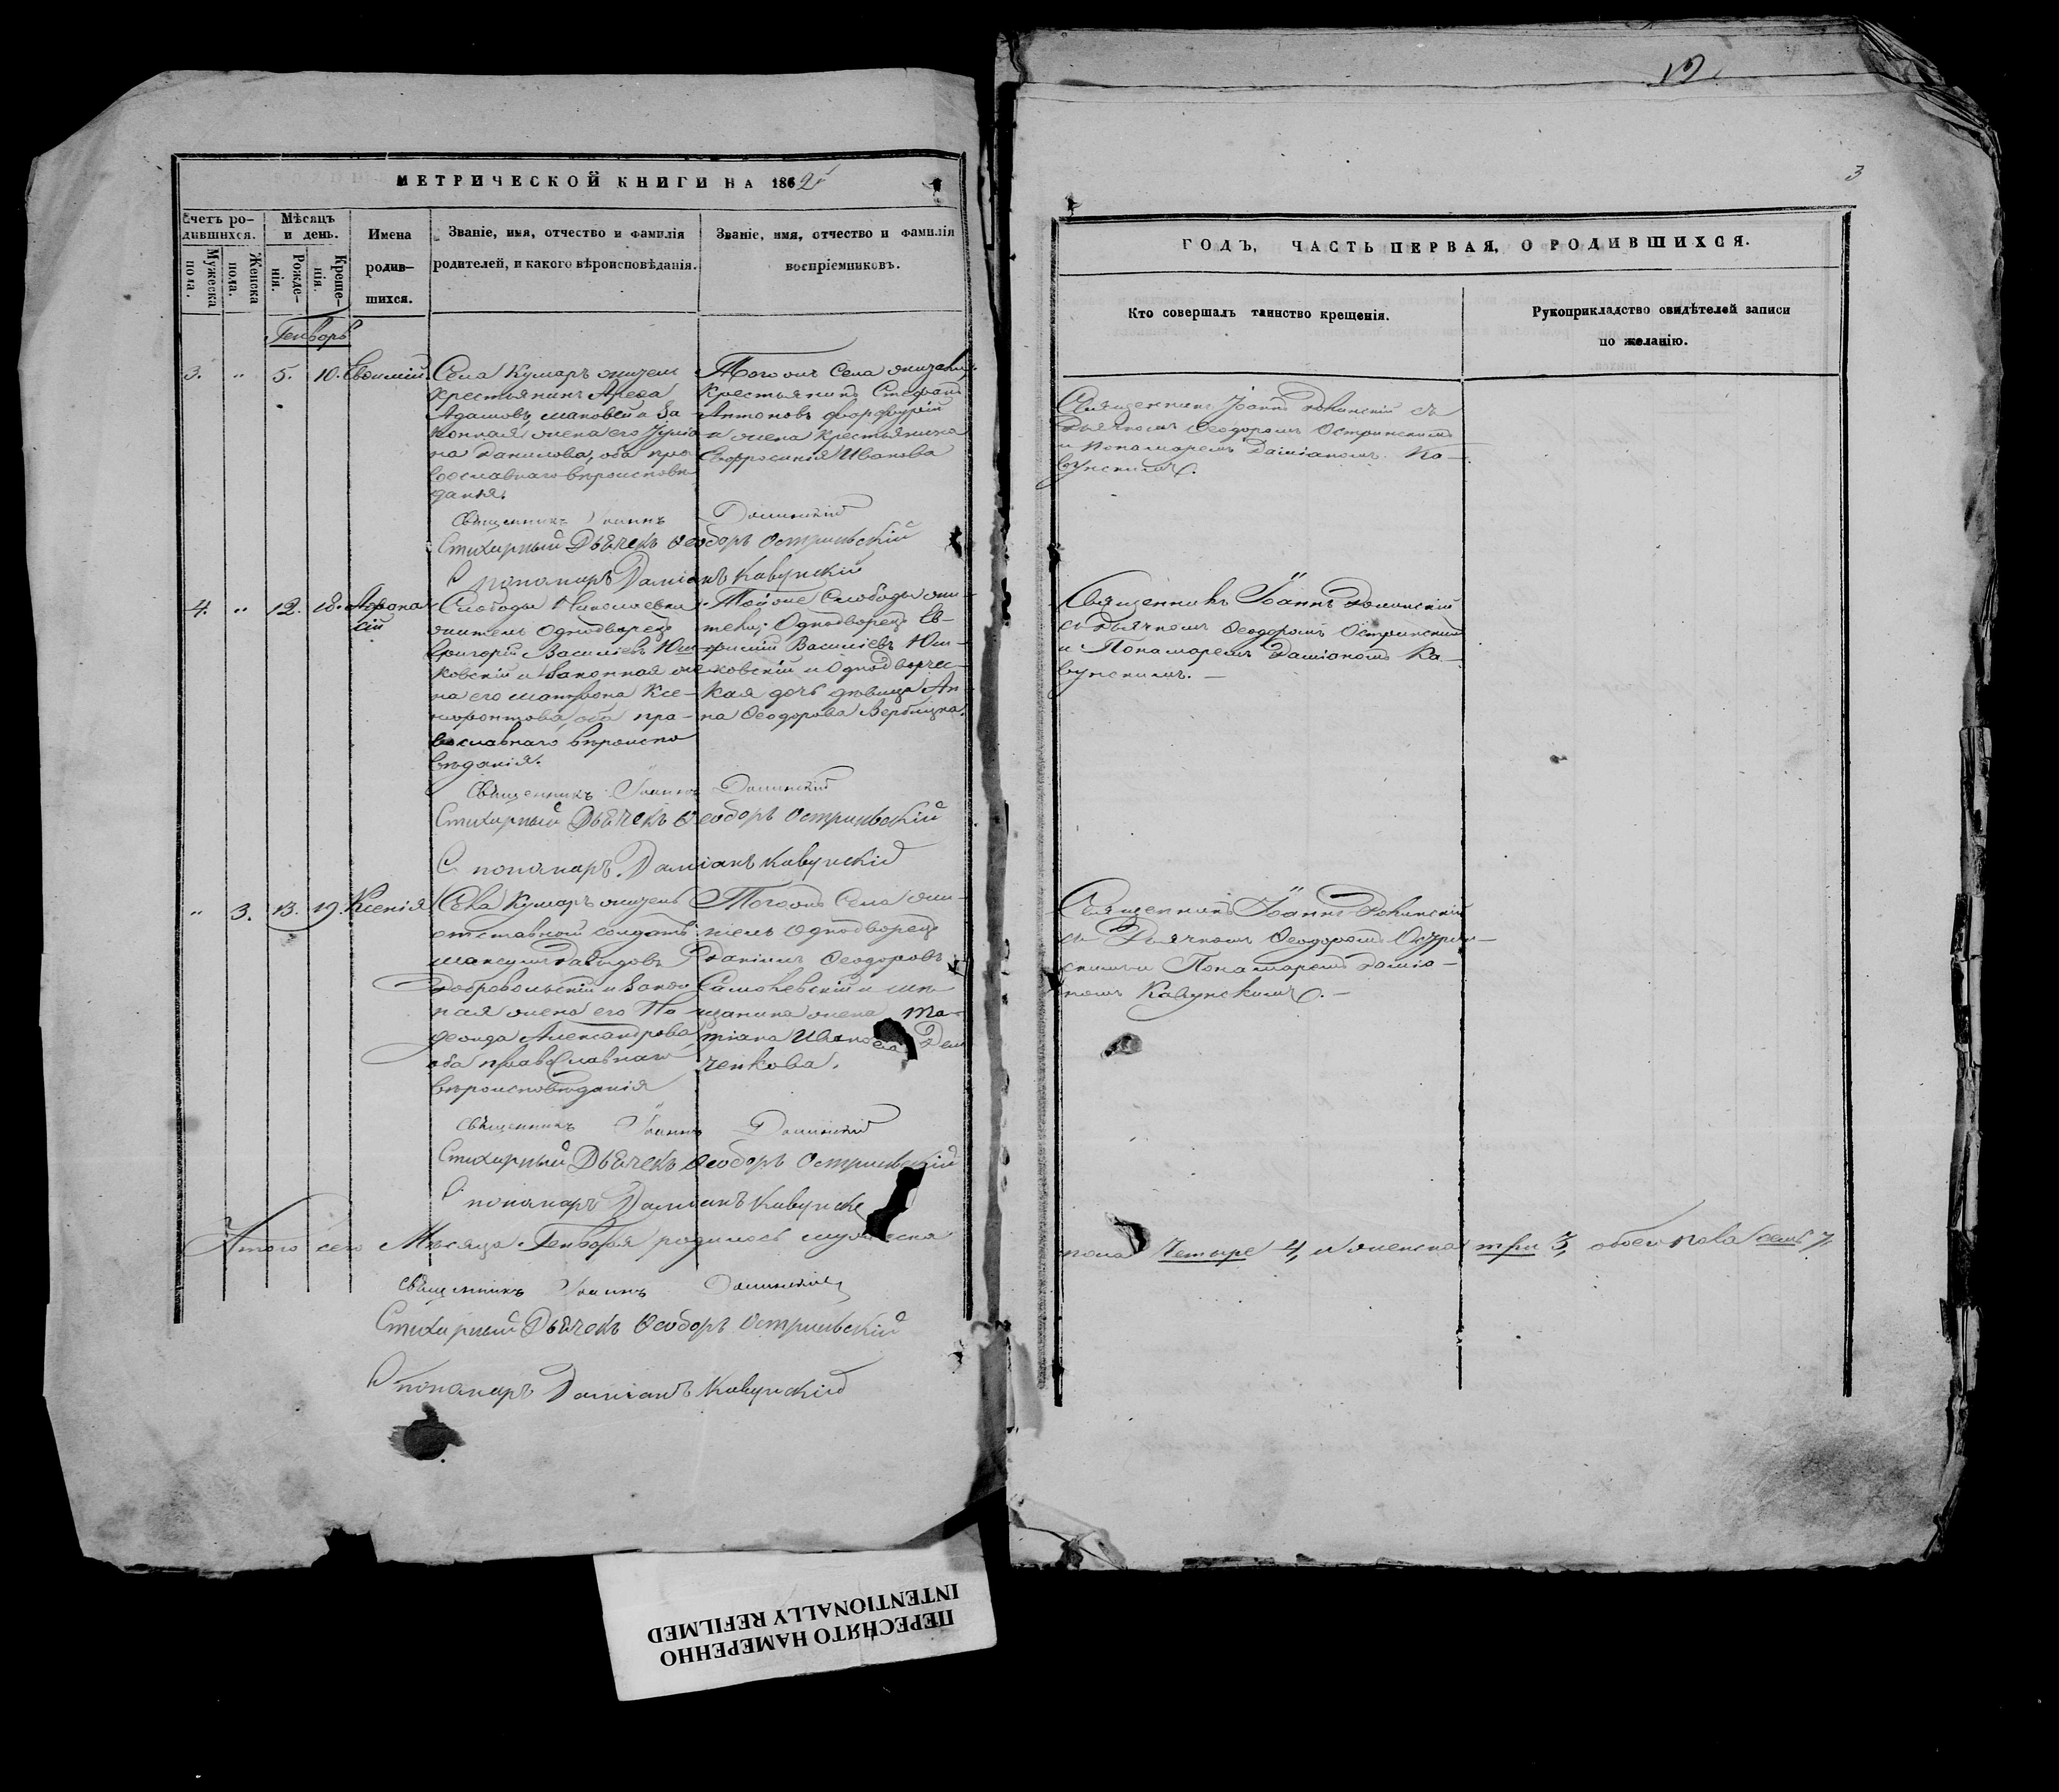 МЕТРИЧЕСКОЙ КНИГИ НА 1862й
Счетъ ро-
дившихся.
Мужеска
пола.
Женска
пола.
Мѣсяцъ
и день.
Рожде-
нія.
Креще-
нія.
Имена
родив-
шихся.
Званіе, имя, отчество и фамилія
родителей, и какого вѣроисповѣданія.
Званіе, имя, отчество и фамилія
воспріемниковъ.
Генворь
3. " 5. 10. Евѳимій
Села Кумаръ житель
крестьянинъ
Адамовъ и за
конная жена его
на Данилова, оба пра
вославнаго вѣроисповѣ
данія.
Тогожъ Села житель
крестьянинъ Стефанъ
Антоновъ
и жена крестьянина
Евфросинія Иванова
Священникъ Іоаннъ Долинскій
Стихарный Дьячекъ Ѳеодоръ Остриевскій
Пономарь Даміанъ Кавунскій
4. " 12. 18. Аѳана
сій
Слободы Николаевки
житель Однодворецъ
Григорій Василіевъ Юш
ковскій и законная же
на его Матрона Ксе-
нофонтова, оба пра-
вославнаго вѣроиспо
вѣданія.
Тойже Слободы жи-
тель Однодворецъ Ев-
фимій Василіевъ Юш-
ковскій и Однодворчес-
кая дочь дѣвица Ан
на Ѳеодорова Вербицка.
Священникъ Іоаннъ Долинскій
Стихарный Дьячекъ Ѳеодоръ Остриевскій
Пономарь Даміанъ Кавунскій
" 3. 13. 19. Ксенія
Села Кумаръ житель
отставной солдатъ
Максимъ Давидовъ
Добровольскій и закон
ная жена его По
Александрова
оба православнаго
вѣроисповѣданія
Тогожъ Села жи-
тель Однодворецъ
Даніилъ Ѳеодоровъ
и мѣ
щанина жена Та-
тіана Иванова Дем
ченкова.
Священникъ Іоаннъ Долинскій
Стихарный Дьячекъ Ѳеодоръ Остриевскій
Пономарь Даміанъ Кавунскі
Итого сего Мѣсяца Генворя родилось мужеска
Священникъ Іоаннъ Долинскій
Стихарный Дьячекъ Ѳеодоръ Остриевскій
Пономарь Даміанъ Кавунскій
3
ГОДЪ, ЧАСТЬ ПЕРВАЯ, О РОДИВШИХСЯ.
Кто совершалъ таинство крещенія.
Рукоприкладство свидѣтелей записи
по желанію.
Священникъ Іоаннъ Долинскій съ
Дьячкомъ Ѳеодоромъ Остриевскимъ
и Пономаремъ Даміаномъ Ка-
вунскимъ.
Священникъ Іоаннъ Долинскій
съ Дьячкомъ Ѳеодоромъ Остриевскимъ
и Пономаремъ Даміаномъ Ка-
вунскимъ.
Священникъ Іоаннъ Долинскій
съ Дьячкомъ Ѳеодоромъ Остриев-
скимъ и Пономаремъ Даміа-
номъ Кавунскимъ.
пола Четыре 4, и женска три 3, обоего пола семь 7.
ПЕРЕСНЯТО НАМЕРЕННО
INTENTIONALLY REFILMED